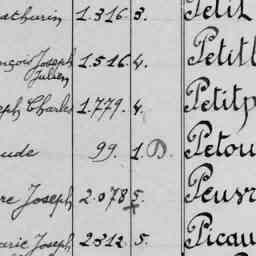 athurin 1.316. 3. Petit
nçois Joseph 1.516. 4. Petitl
Julien
eph Charles 1.779. 4. Petitp
ude 99. 1. D. Petou
re Joseph 2.078 5. Peuvr
arie Joseph 2312. 5. Picau